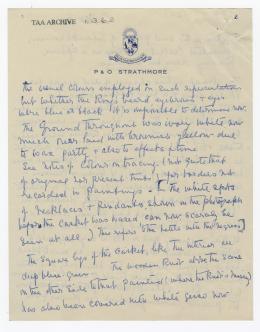 TAA ARCHIVE i.3.6.0 2
P & O STRATHMORE
The usual colours employed in such representation
but whether the King's beard eyebrows & eyes
were blue or black it is impossible to determine now.
The Ground Throughout was ivory white now
much over laid with brownish yellow due
to wax partly & also to effects of time
See notes of Colour on tracing, but quite that
of original nor present tints. (for borders not
recorded in paintings. [The white spots
of Necklaces & Pendants shown on the photographs
before the Casket was waxed can now scarcely be
seen at all] This refers to the battle with the negroes]
The Square legs of this Casket, like the interior are
deep blue-green. The wooden Knob above the scene
on the other side to that painted (where the Knob is missing)
has also been covered with white gesso now